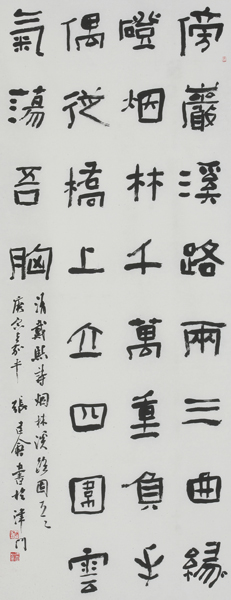 傍巖溪路兩三曲緣
磴烟林千萬重負手
偶從橋上立四圍雲
氣蕩吾胸
清戴熙詩烟林溪路圖
張建會書於津門